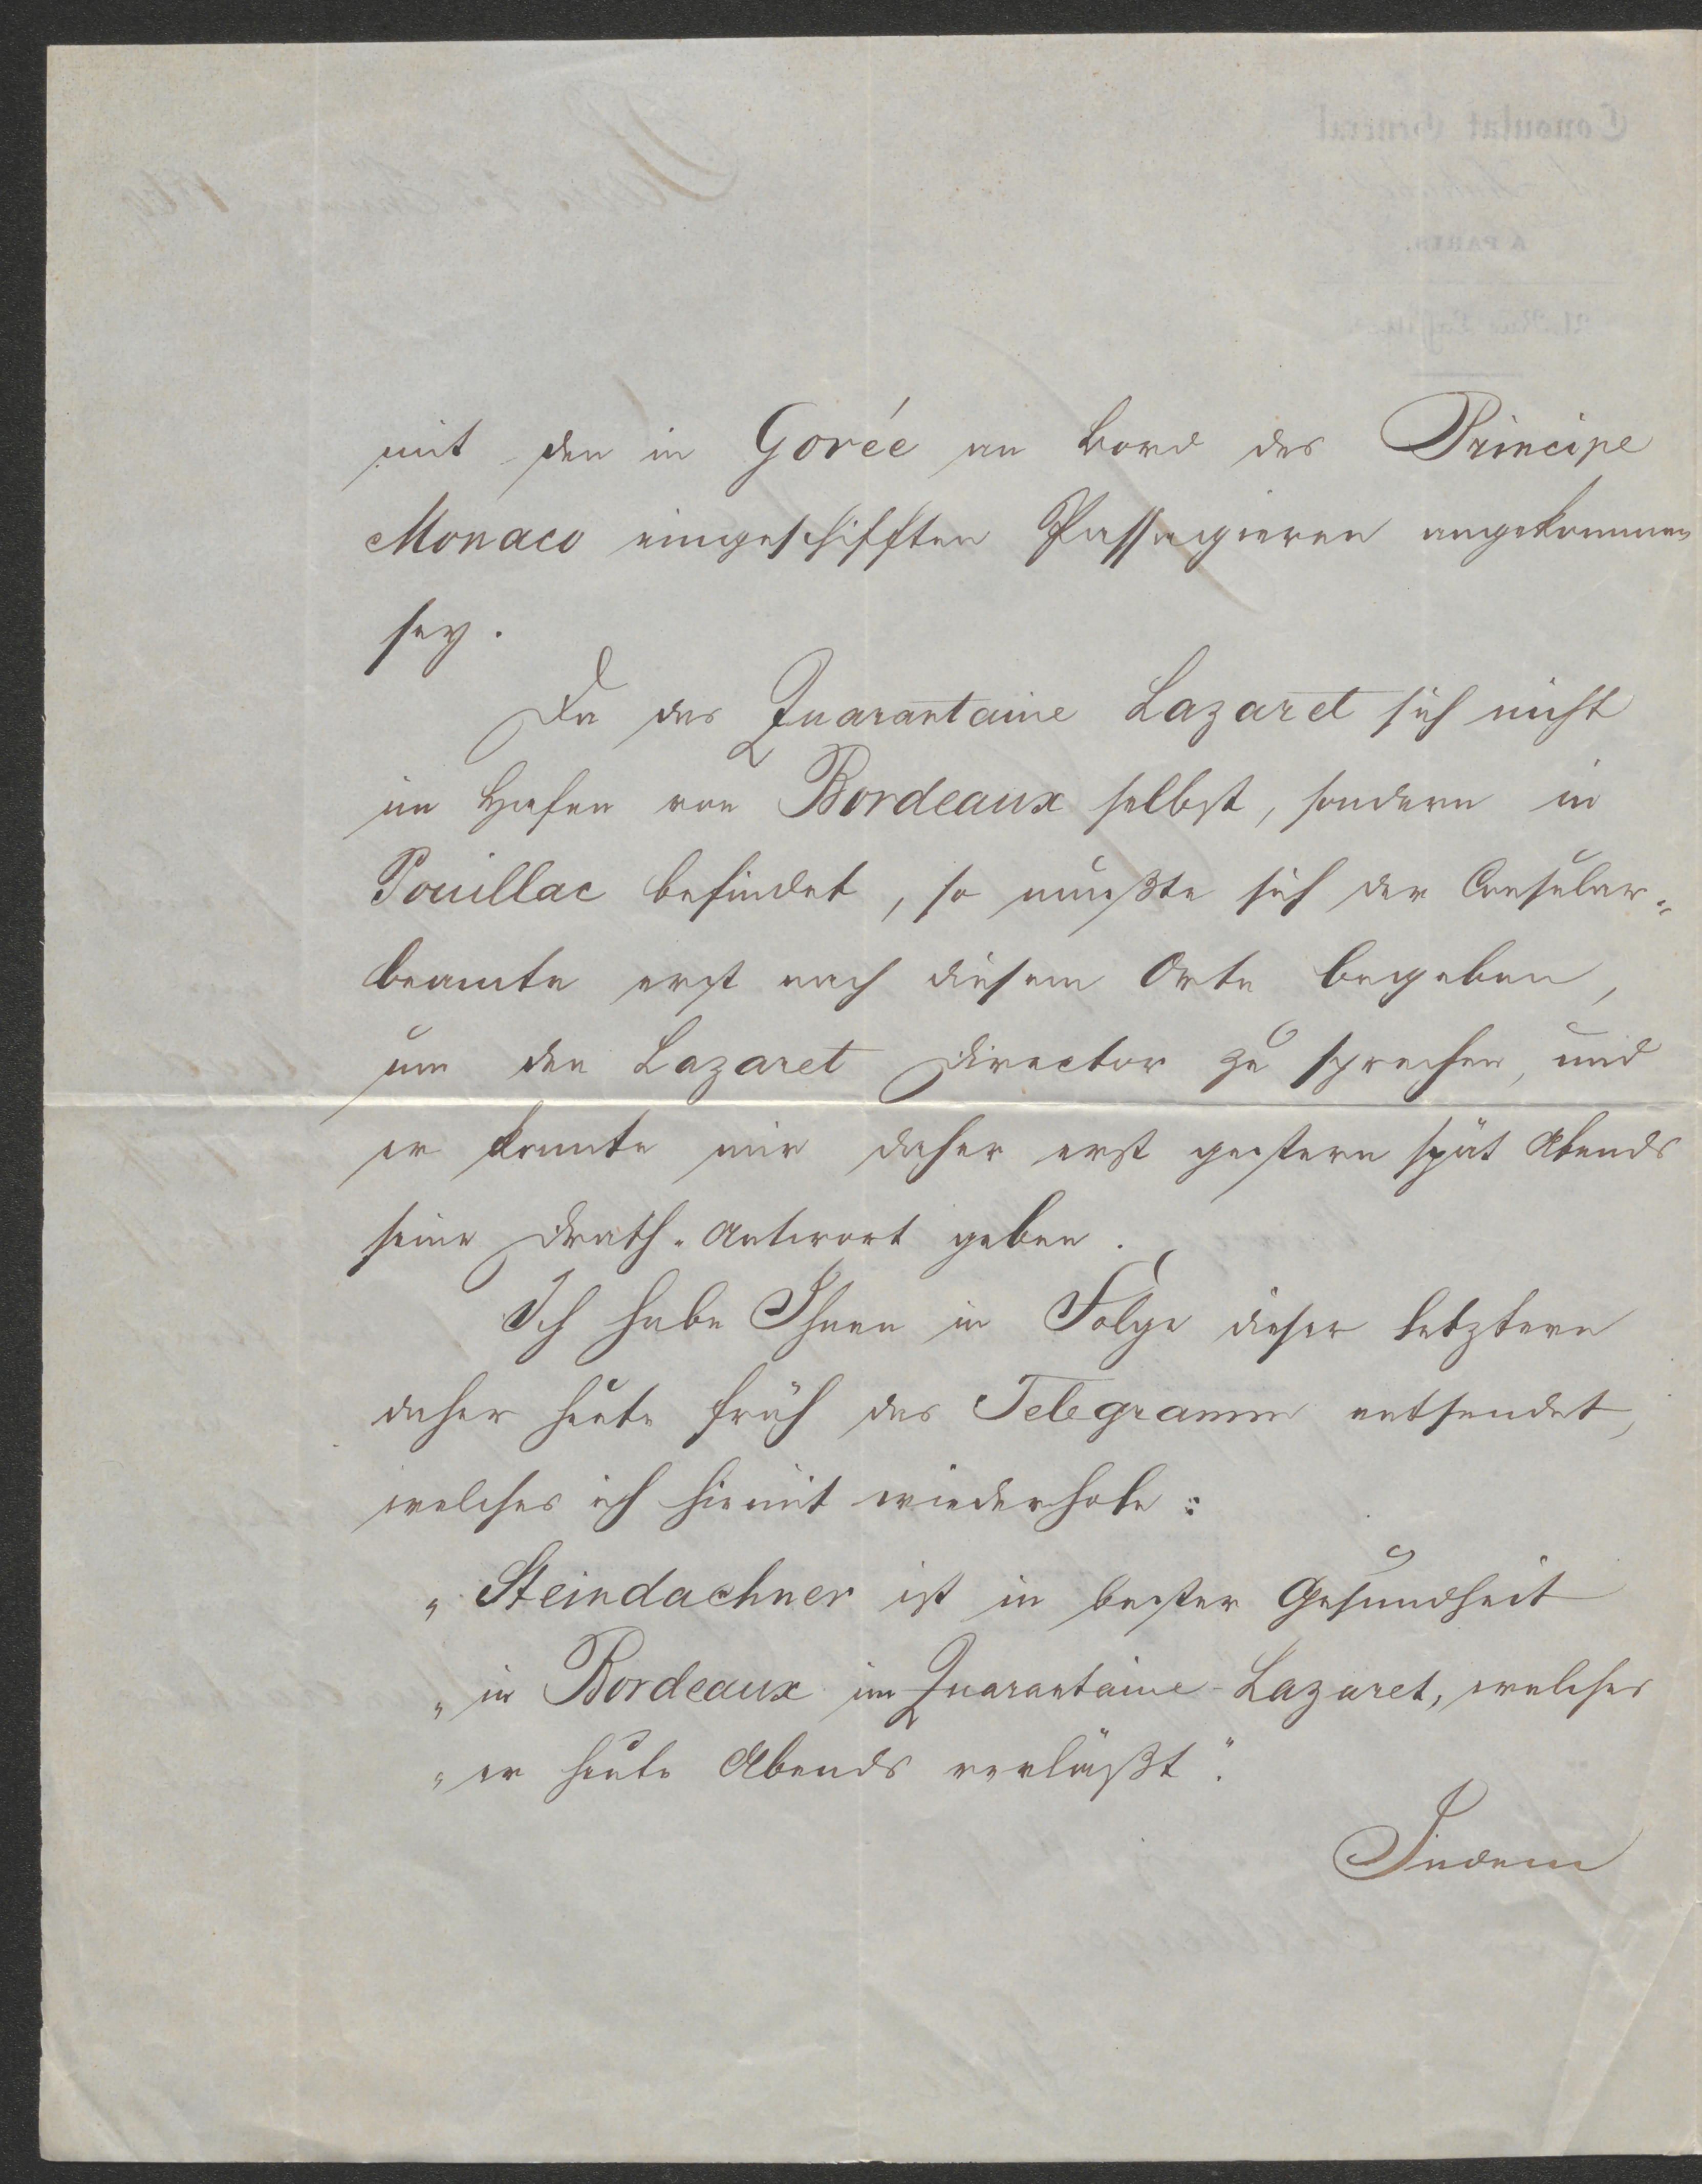 mit den in Gorée an Bord des Principe
Monaco eingeschifften Passagieren angekommen
sey.
Da das Quarantaine Lazaret sich nicht
im Hafen von Bordeaux selbst, sondern in
Pouillac befindet, so mußte sich der Consular-
beamte erst nach diesem Orte begeben,
um den Lazaret Director zu sprechen, und
er konnte mir daher erst gestern spät Abends
seine Drath-Antwort geben.
Ich habe Ihnen in Folge dieser letztern
daher heute früh das Telegramm entsendet,
welches ich hiemit wiederhole:
„Steindachner ist in bester Gesundheit
„in Bordeaux im Quarantaine-Lazaret, welches
„er heute Abends verläßt".
Indem